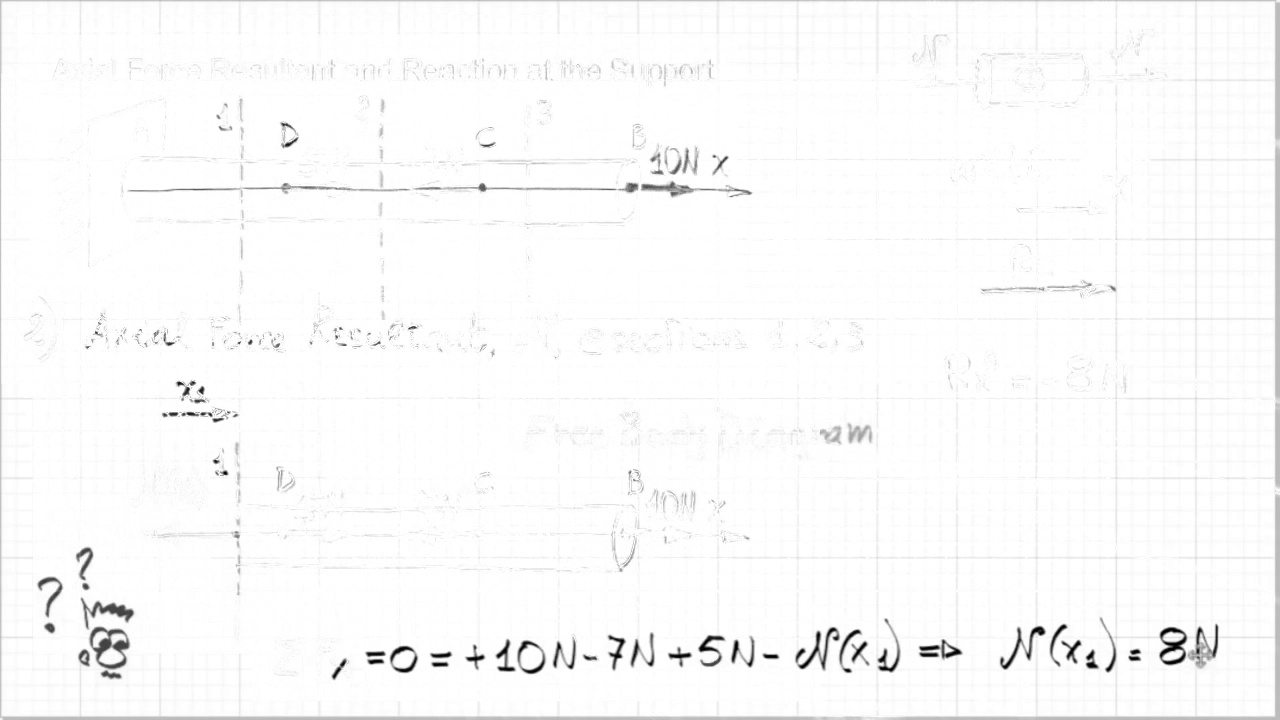 Axial Force Resultant and Reaction at the Support
N N
1 2 3
A D C B
5N 7N 10N x
2) Axial Force Resultant, N, @ sections 1, 2, 3
Rx = -8N
x1
Free Body Diagram
1 D C B
10N x
? ?
=0 = +10N-7N+5N- N(x1) => N(x1) = 8N